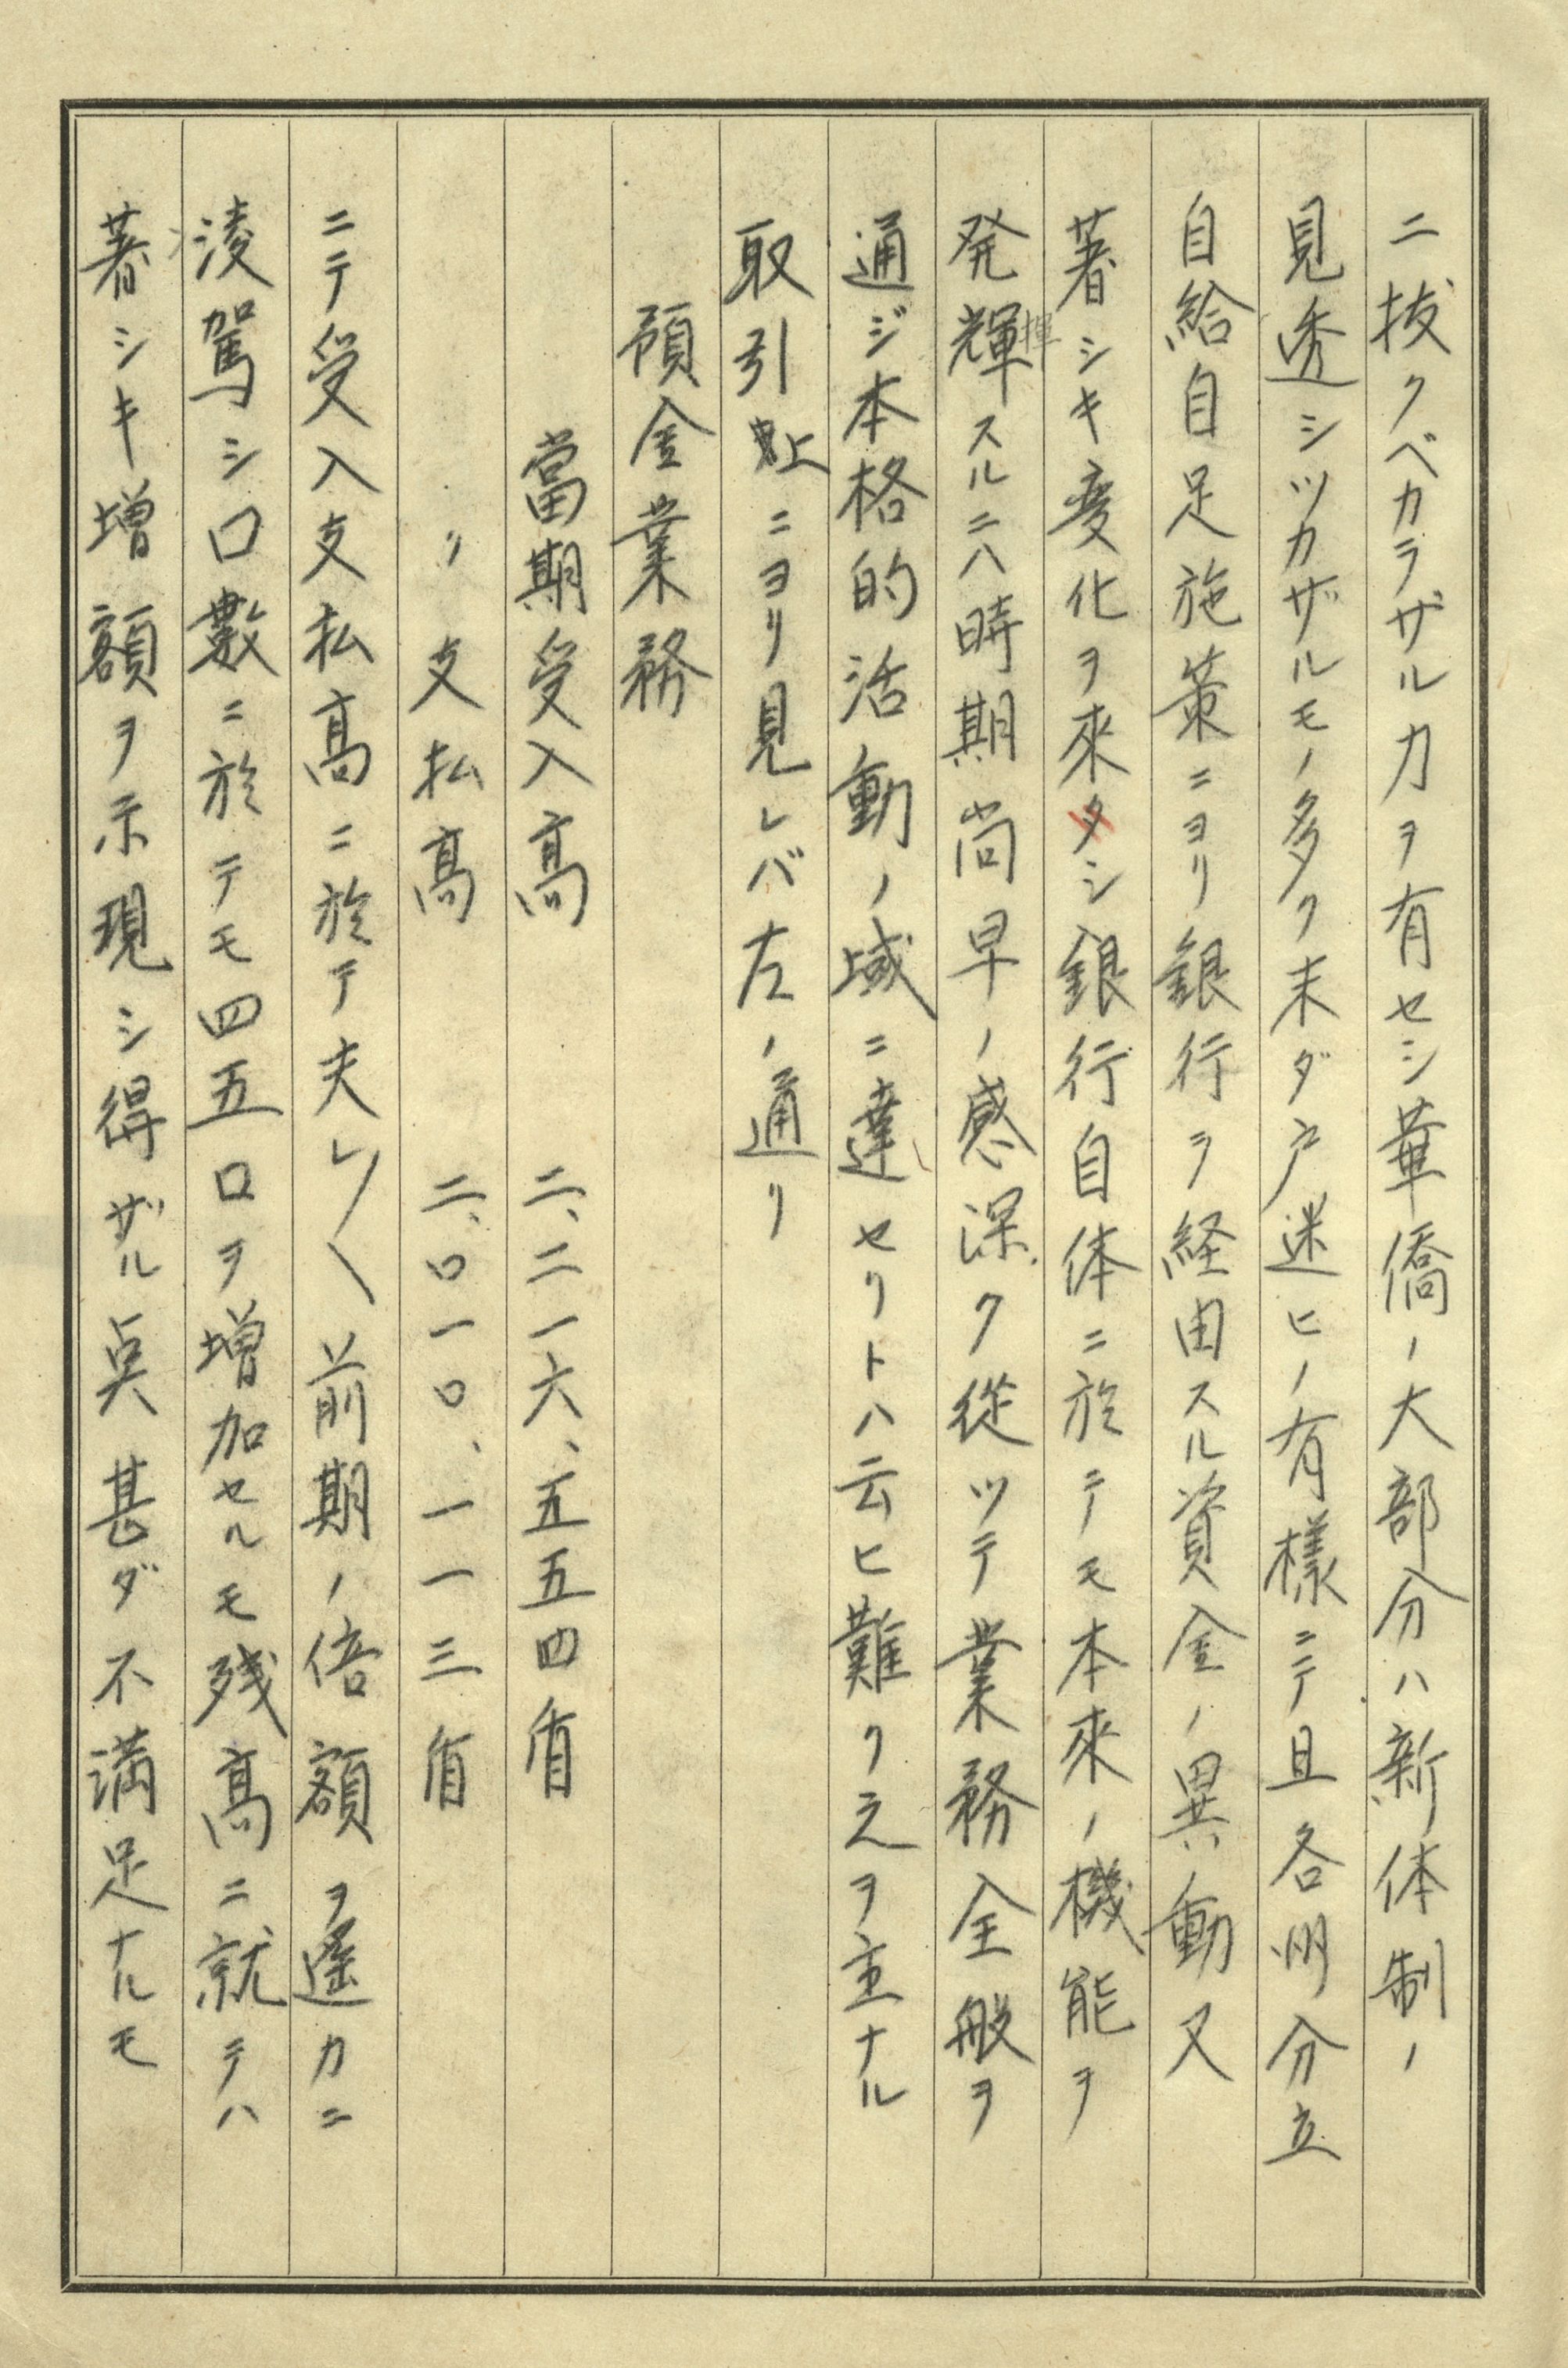 ニ抜クベカラザル力ヲ有セシ華僑ノ大部分ハ新体制ノ
見透シツカザルモノ多ク末ダ戸迷ヒノ有様ニテ且各州分立
自給自足施策ニヨリ銀行ヲ経由スル資金ノ異動又
著シキ変化ヲ來タシ銀行自体ニ於テモ本來ノ機能ヲ
発輝スルニハ時期尚早ノ感深ク從ツテ業務全般ヲ
揮
通ジ本格的活動ノ域ニ達セリトハ云ヒ難ク之ヲ主ナル
取引上ニヨリ見レバ左ノ通リ
預金業務
當期受入高 二、二一六、五五四弗
〃 支払高 二、〇一〇、一一三弗
ニテ受入支払高ニ於テ夫レ〳〵前期ノ倍額ヲ遙カニ
凌駕シ口數ニ於テモ四五口ヲ増加セルモ残高ニ就テハ
著シキ増額ヲ示現シ得ザル奌甚ダ不満足ナルモ